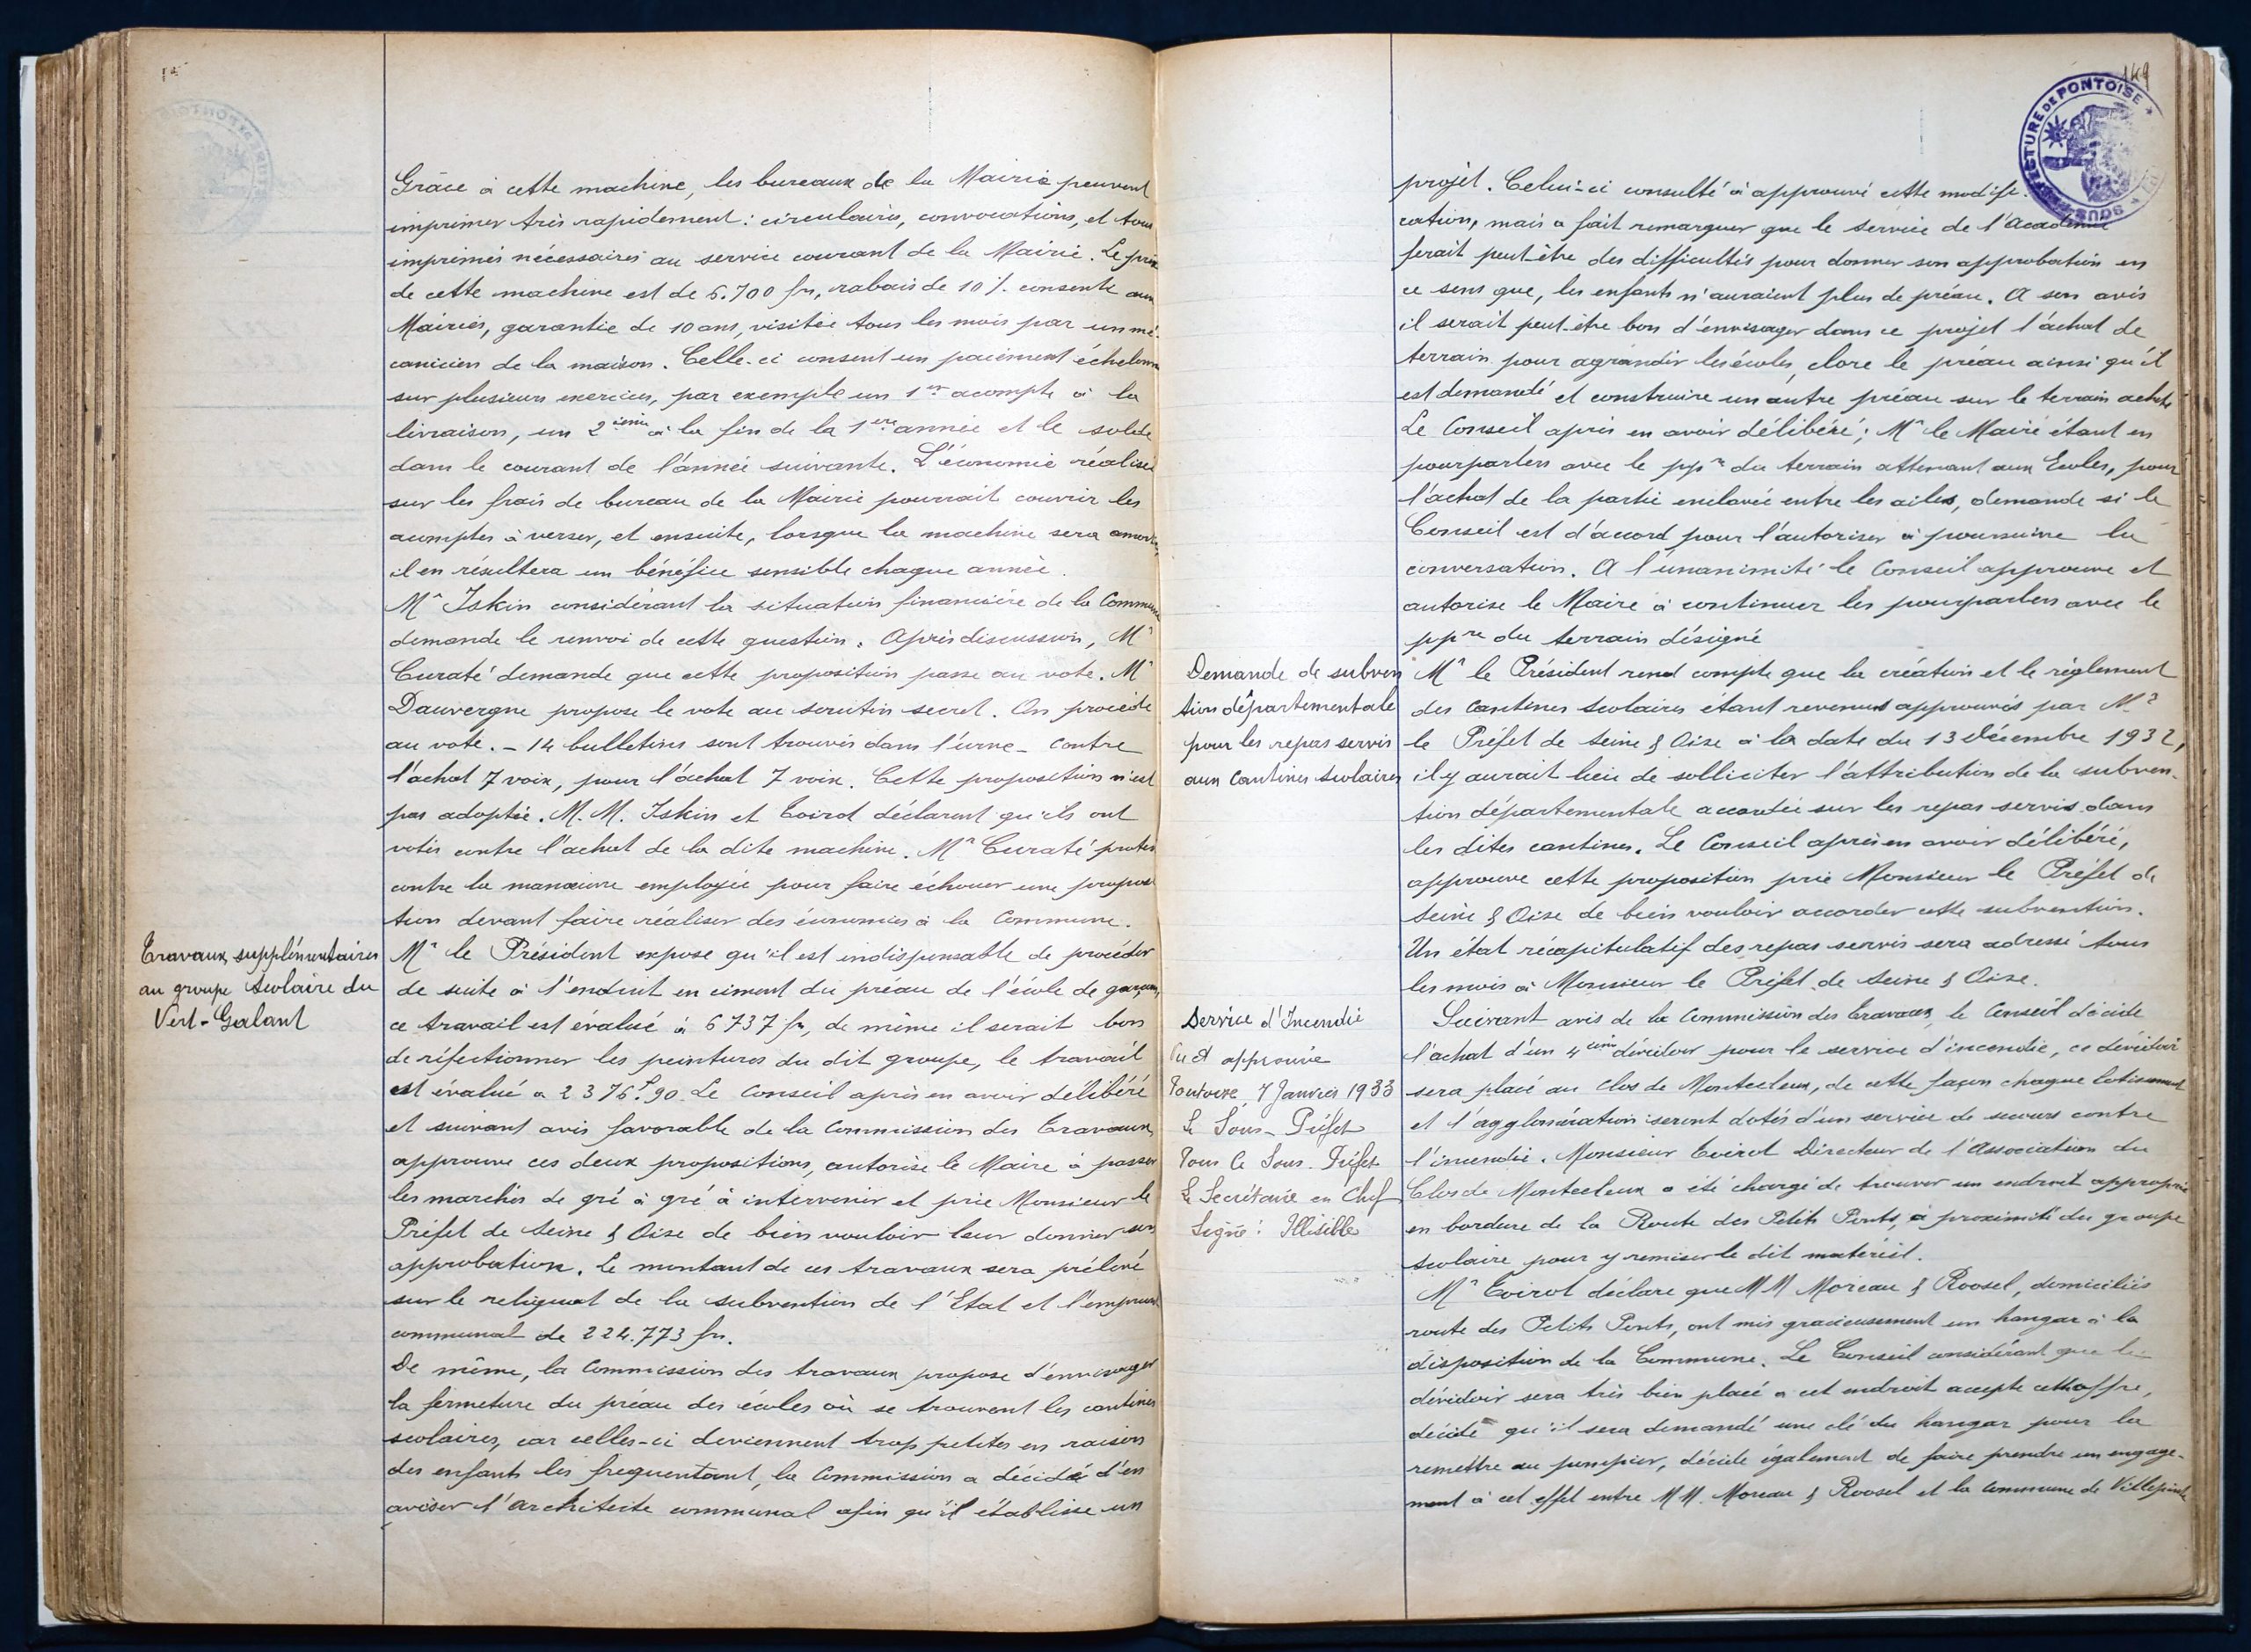 Grâce à cette machine, les bureaux de la Mairie peuvent
imprimer très rapidement : circulaires, convocations, et tous
imprimés nécessaires au service courant de la Mairie. Le prix
de cette machine est de 6.700 frs, rabais de 10 % consenti aux
Mairies, garantie de 10 ans, visitée tous les mois par un mé-
canicien de la maison. Celle-ci consent un paiement échelonn
sur plusieurs exercices, par exemple un 1er acompte à la
livraison, un 2ième à la fin de la 1ère année et le solde
dans le courant de l'année suivante. L'économie réalisée
sur les frais de bureau de la Mairie pourrait couvrir les
acomptes à verser, et ensuite, lorsque la machine sera amortie,
il en résultera un bénéfice sensible chaque année.
Mr Iskin considérant la situation financière de la Commune
demande le renvoi de cette question. Après discussion, Mr
Curaté demande que cette proposition passe au vote. Mr
Dauvergne propose le vote au scrutin secret. On procède
au vote. - 14 bulletins sont trouvés dans l'urne - contre
l'achat 7 voix, pour l'achat 7 voix. Cette proposition n'est
pas adoptée. M.M. Iskin et Coirot déclarent qu'ils ont
votés contre l'achat de la dite machine. Mr Curaté protes
contre la manœuvre employée pour faire échouer une propos
tion devant faire réaliser des économies à la Commune.
Travaux supplémentaires
au groupe Scolaire du
Vert-Galant
Mr le Président expose qu'il est indispensable de procéder
de suite à l'enduit en ciment du préau de l'école de garçons,
ce travail est évalué à 6737 frs, de même il serait bon
de réfectionner les peintures du dit groupe, le travail
est évalué a 2376f.90. Le Conseil après en avoir délibéré
et suivant avis favorable de la Commission des Travaux,
approuve ces deux propositions, autorise le Maire à passer
les marchés de gré à gré à intervenir et prie Monsieur le
Préfet de Seine & Oise de bien vouloir leur donner son
approbation. Le montant de ces travaux sera prélevé
sur le reliquat de la subvention de l'Etat et l'emprunt
communal de 224.773 frs.
De même, la Commission des travaux propose d'envisager
la fermeture du préau des écoles où se trouvent les cantines
scolaires, car celles-ci deviennent trop petites en raison
des enfants les frequentant, la Commission a décidé d'en
aviser l'Architecte communal afin qu'il établisse un
149
SOUS-PREFECTURE DE PONTOISE
projet. Celui-ci consulté a approuvé cette modifi-
cation, mais a fait remarquer que le service de l'Académie
ferait peut-être des difficultés pour donner son approbation en
ce sens que, les enfants n'auraient plus de préau. A son avis
il serait peut-être bon d'envisager dans ce projet l'achat de
terrain pour agrandir les écoles, clore le préau ainsi qu'il
est demandé et construire un autre préau sur le terrain acheté
Le Conseil après en avoir délibéré ; Mr le Maire étant en
pourparlers avec le ppre du terrain attenant aux Ecoles, pour
l'achat de la partie enclavée entre les ailes, demande si le
Conseil est d'accord pour l'autoriser à poursuivre la
conversation. A l'unanimité le Conseil approuve et
autorise le Maire à continuer les pourparlers avec le
ppre du terrain désigné
Demande de subven
tion départementale
pour les repas servis
aux Cantines Scolaires
Mr le Président rend compte que la création et le règlement
des Cantines Scolaires étant revenus approuvés par Mr
le Préfet de Seine & Oise à la date du 13 Décembre 1932,
il y aurait lieu de solliciter l'attribution de la subven-
tion départementale accordée sur les repas servis dans
les dites cantines. Le Conseil après en avoir délibéré,
approuve cette proposition prie Monsieur le Préfet de
Seine & Oise de bien vouloir accorder cette subvention.
Un état récapitulatif des repas servis sera adressé tous
les mois à Monsieur le Préfet de Seine & Oise.
Service d'Incendie
Vu et approuvé
Pontoise, 7 Janvier 1933
Le Sous-Préfet
Pour le Sous-Préfet
Le Secrétaire en Chef
Signé : Illisible
Suivant avis de la Commission des Travaux, le Conseil décide
l'achat d'un 4ème dévidoir pour le service d'incendie, ce dévidoir
sera placé au Clos de Montceleux, de cette façon chaque lotissement
et l'agglomération seront dotés d'un service de secours contre
l'incendie. Monsieur Coirot Directeur de l'Association du
Clos de Montceleux a été chargé de trouver un endroit approprié
en bordure de la Route des Petits Ponts, à proximité du groupe
scolaire pour y remiser le dit matériel.
Mr Coirot déclare que MM Moreau & Roosel, domiciliés
route des Petits Ponts, ont mis gracieusement un hangar à la
disposition de la Commune. Le Conseil considérant que le
dévidoir sera très bien placé a cet endroit accepte cette offre,
décide qu'il sera demandé une clé du hangar pour la
remettre au pompier, décide également de faire prendre un engage-
ment à cet effet entre MM. Moreau & Roosel et la Commune de Villepinte